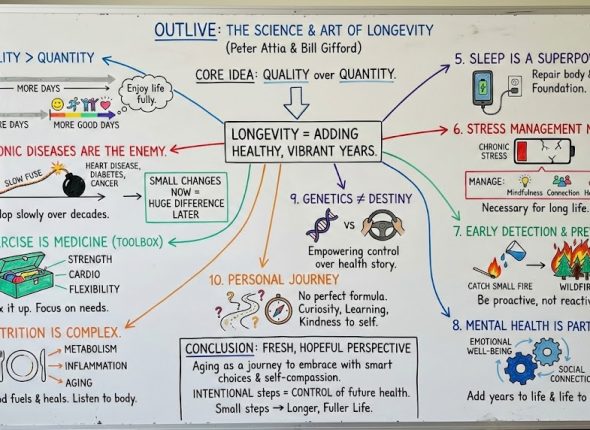 OUTLIVE: THE SCIENCE & ART OF LONGEVITY
(Peter Attia & Bill Gifford)
CORE IDEA: QUALITY over QUANTITY.
LONGEVITY = ADDING
HEALTHY, VIBRANT YEARS.
LITY > QUANTITY
MORE DAYS
Enjoy life
fully.
RE DAYS
MORE GOOD DAYS
ONIC DISEASES ARE THE ENEMY.
SLOW FUSE
HEART DISEASE,
DIABETES,
CANCER
lop slowly over decades.
SMALL CHANGES
NOW =
HUGE DIFFERENCE
LATER
ERCISE IS MEDICINE (TOOLBOX)
STRENGTH
CARDIO
FLEXIBILITY
x it up. Focus on needs.
TRITION IS COMPLEX.
METABOLISM
INFLAMMATION
AGING
od fuels & heals. Listen to body.
5. SLEEP IS A SUPERPO
Repair body &
Foundation.
6. STRESS MANAGEMENT N
CHRONIC
STRESS
MANAGE:
Mindfulness Connection H
Necessary for long life.
7. EARLY DETECTION & PRE
CATCH SMALL FIRE
WILDFIR
Be proactive, not reactiv
8. MENTAL HEALTH IS PART
EMOTIONAL
WELL-BEING
SOCIAL
CONNECTIO
Add years to life & life to
9. GENETICS ≠ DESTINY
VS
Empowering control
over health story.
10. PERSONAL JOURNEY
? ? ?
No perfect formula.
Curiosity, Learning,
Kindness to self.
CONCLUSION: FRESH, HOPEFUL PERSPECTIVE
Aging as a journey to embrace with smart
choices & self-compassion.
INTENTIONAL steps = CONTROL of future health.
Small steps → Longer, Fuller Life.